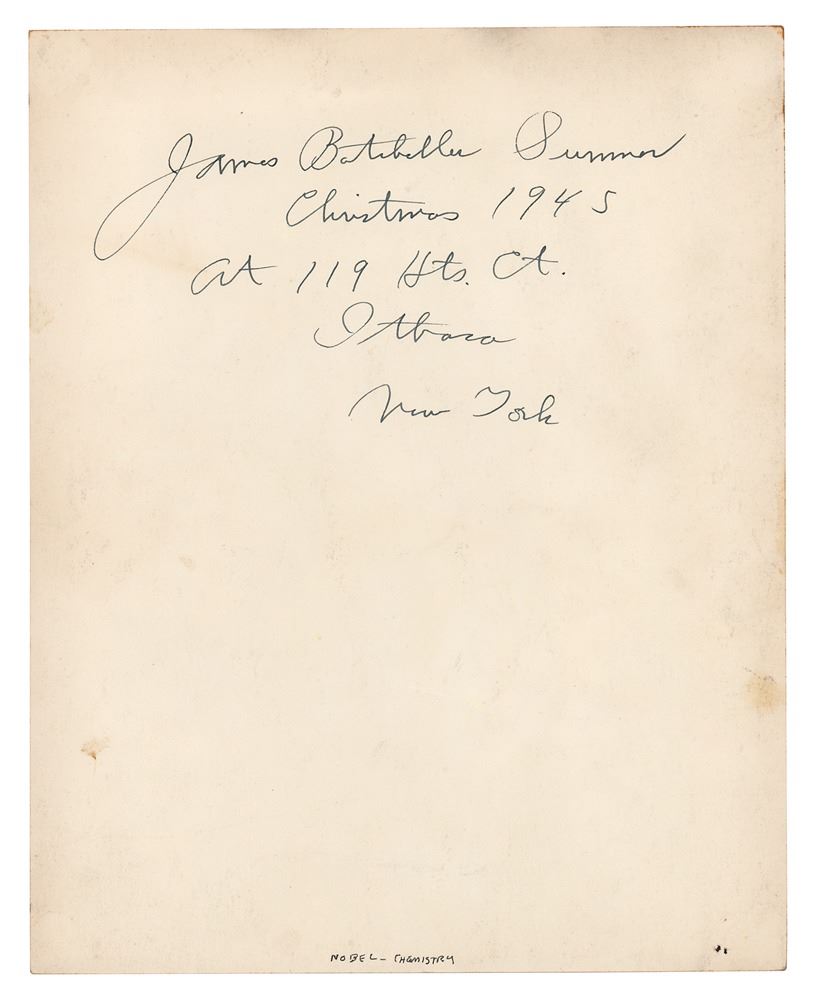 James Batcheller Sumner
Christmas 1945
At 119 Hts. Ct.
Ithaca
New York
NOBEL - CHEMISTRY